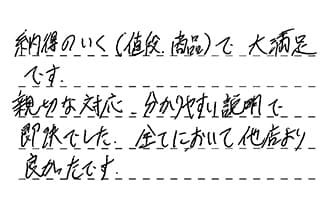 納得のいく(値段.商品)で 大満足
です.
親切な対応. 分かりやすい説明で
即決でした. 全てにおいて他店より
良かったです.